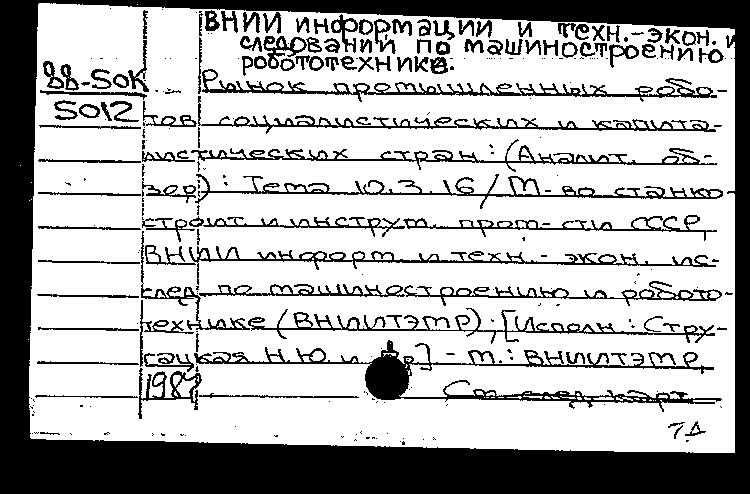 ВНИИ информации и техн.-экон. и
следований по машиностроению
робототехнике.
88-5ОК
5012
Рынок промышленных робо-
тов социалистических и капита-
листических стран : (Аналит. об-
зор) : Тема 10.3.16 / М-во станко-
строит. и инструм. пром-сти СССР,
ВНИИ информ. и техн.- экон. ис-
след. по машиностроению и робото-
технике (ВНИИТЭМР) ; [Исполн : Стру-
сацкая Н.Ю и др.] - М. : ВНИИТЭМР,
1987
См след. карт